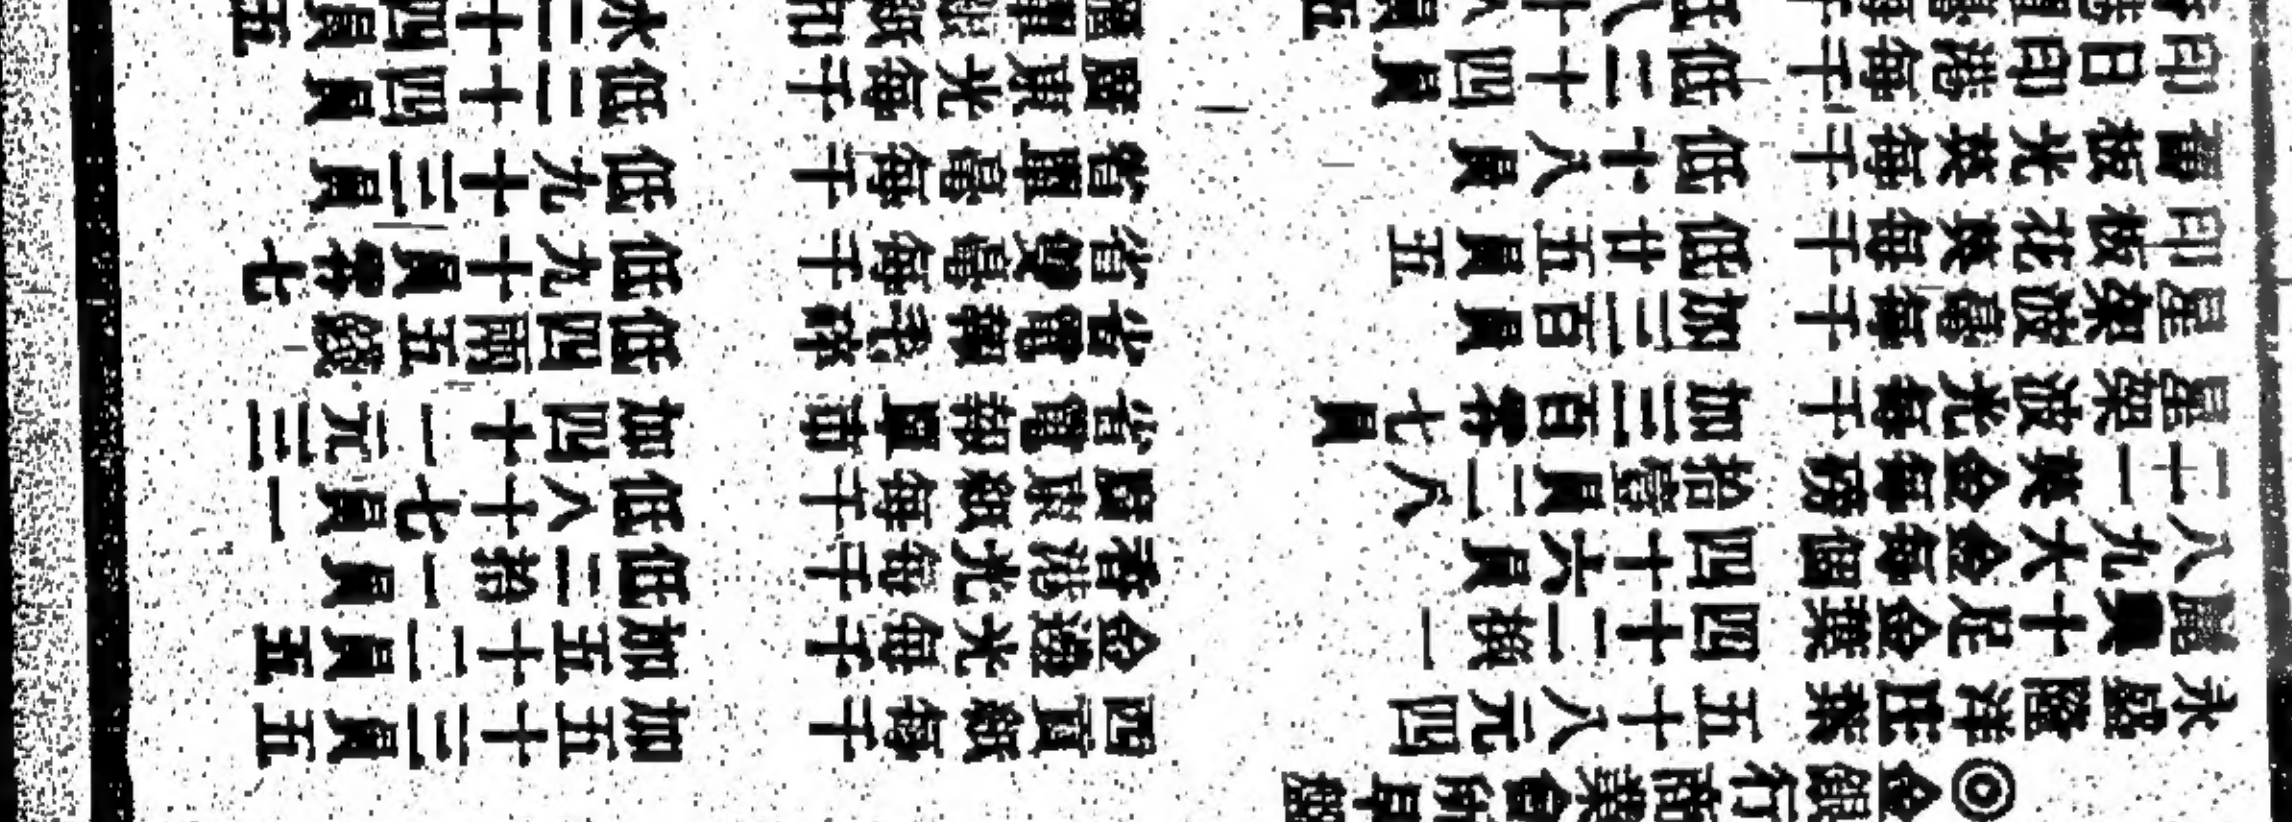 ◎金銀行商業會所早盤
永盛隆洋庄葉 五十八元四
麗興十足金葉 四十二換一
八九大金每個 四十六員
二一英金每磅 拾壹員二八
星架波光每千 加三百零七員
星架波毫每千 加二百員
印板花英每千 低廿五員五
舊板光英每千 低十八員
印日印港每千 低二十四員
西貢紙每千 加五十三員五
金邊光每千 加五十二員五
香港光每千 低二拾一員
呂宋紙每千 低八十七員一
省電報單市 加四十一元三
省電報毛碎 低四兩五錢
省雙毫每千 低九十員零七
省單毫每千 低九十三員
廣東光每千 低二十四員